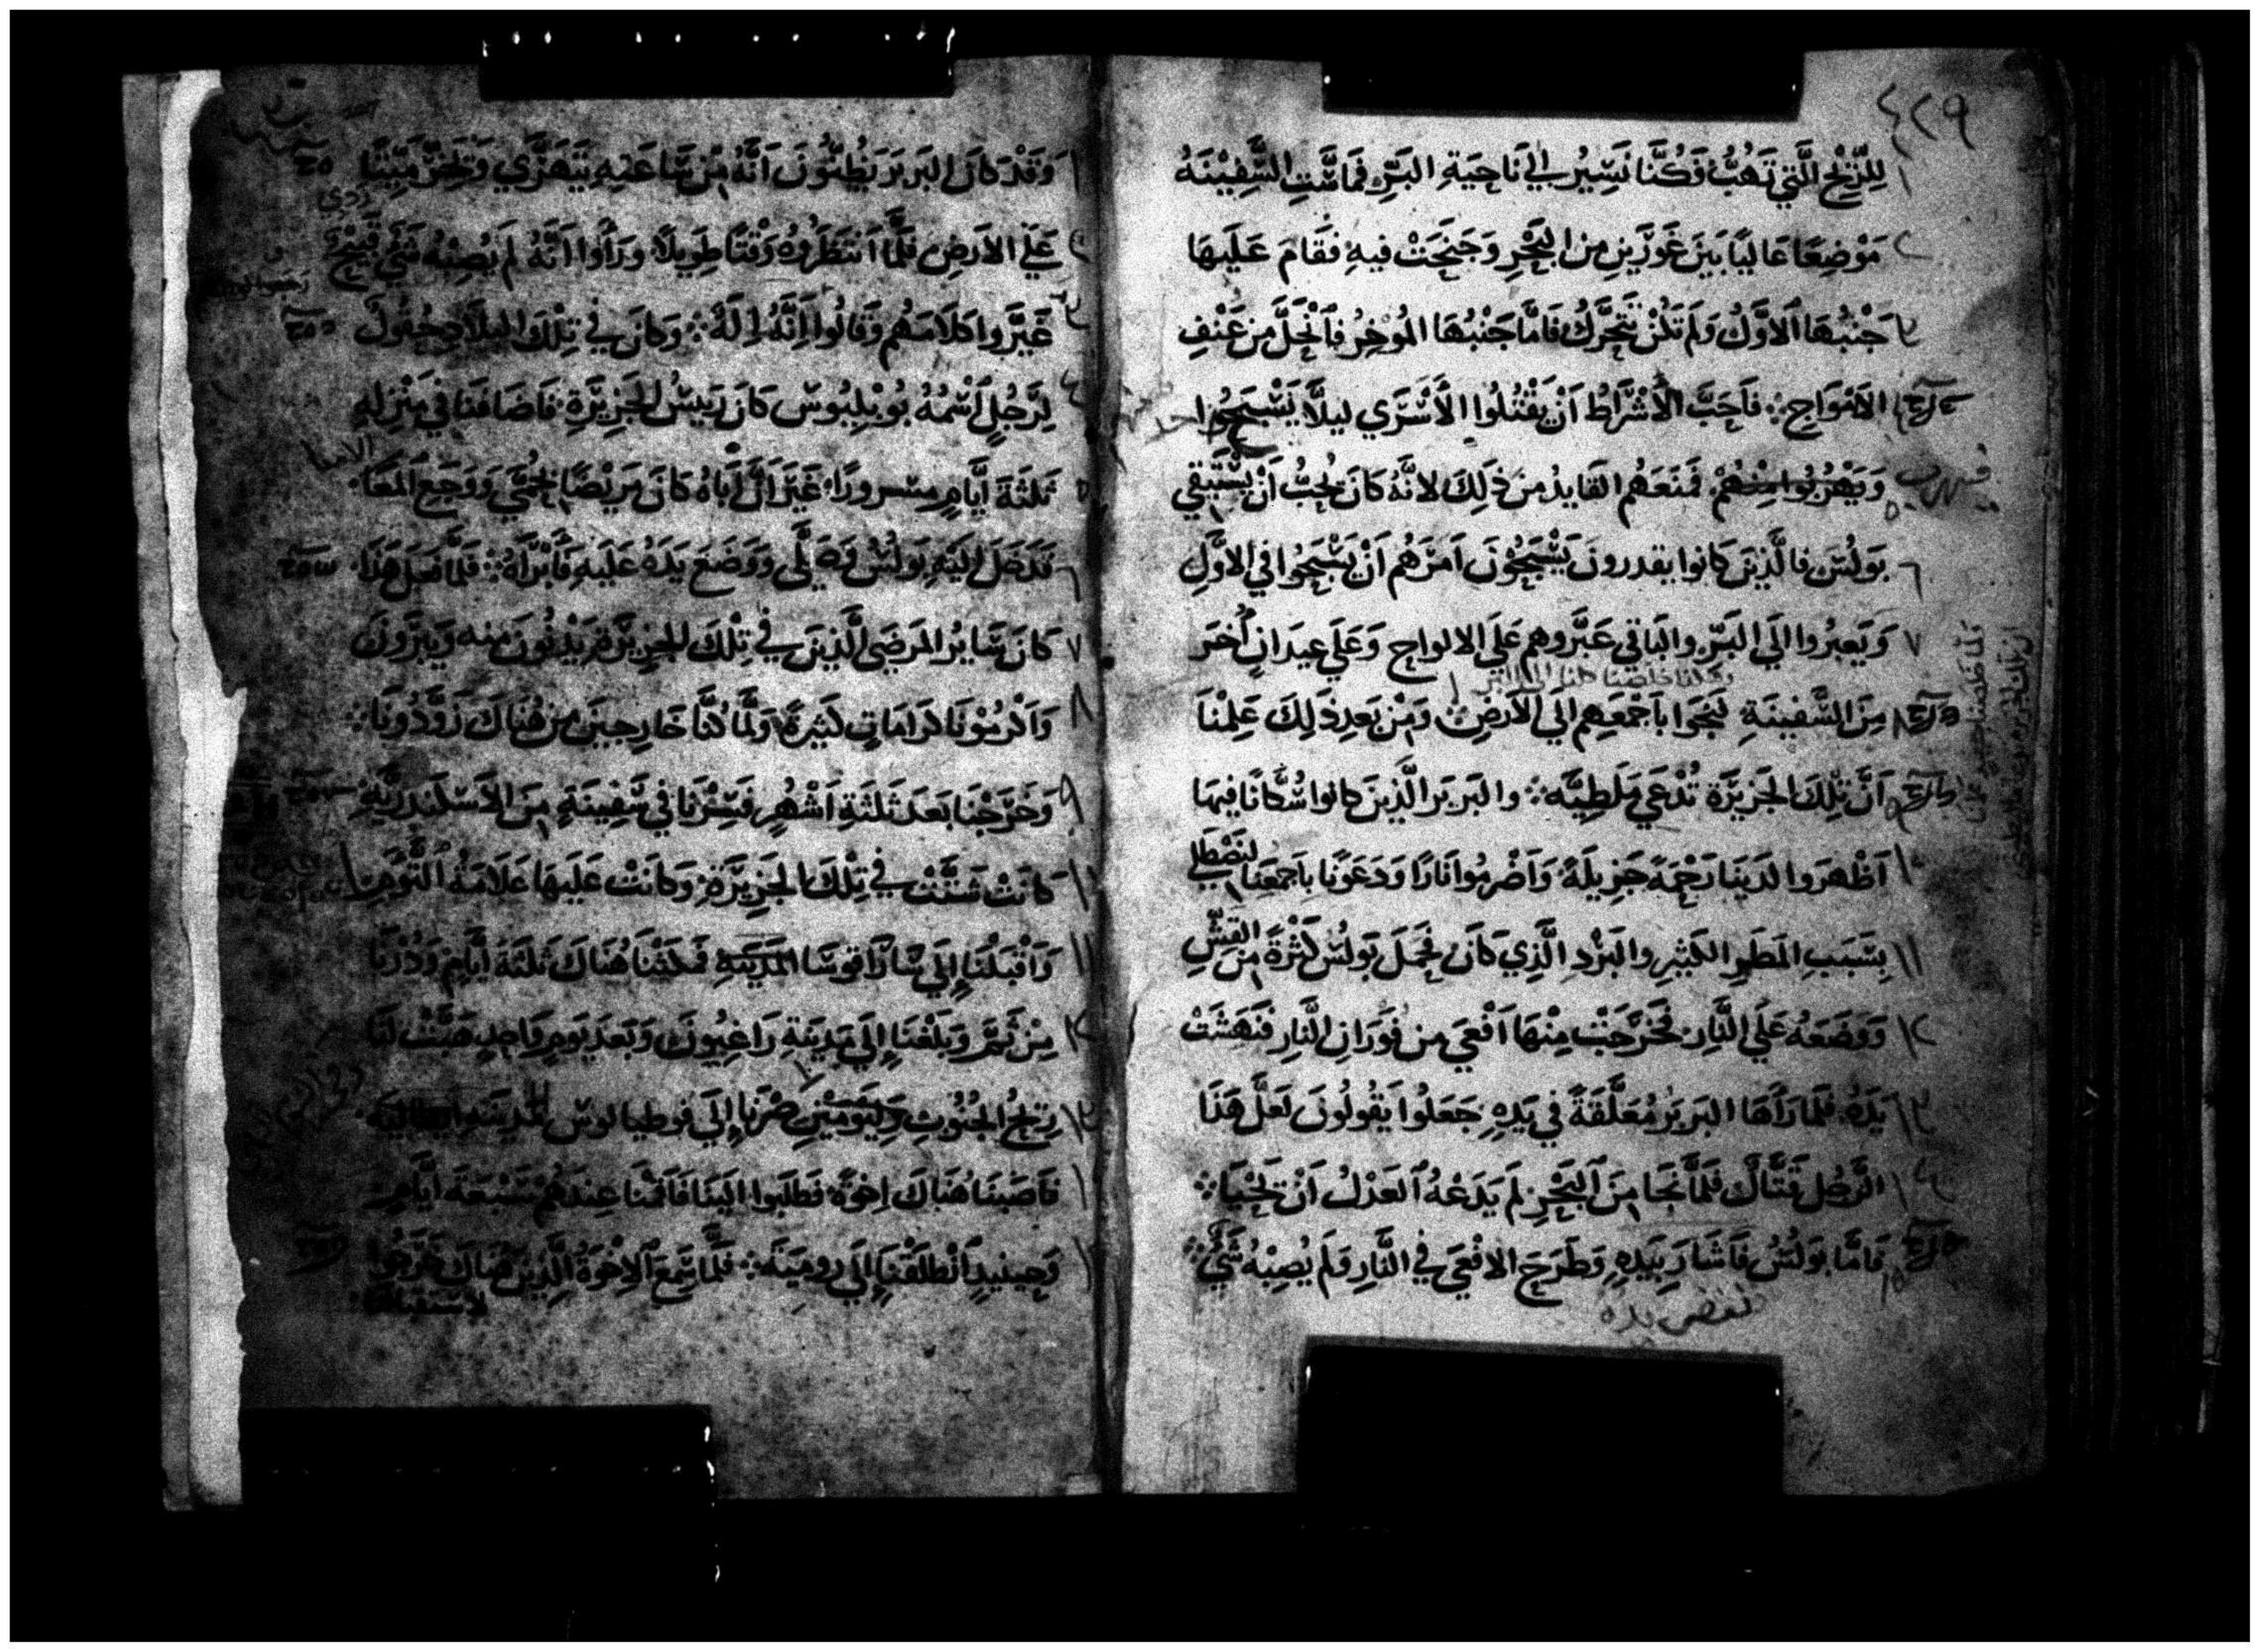 ٤٢٩
١ لِلرِّيْحِ الَّتِي تَهُبُّ وَكُنَّا نَسِيْرُ إِلَي نَاحِيَةِ البَرِّ فَمَاسَّتِ السَّفِيْنَهُ
٢ مَوْضِعًا عَاليًا بَيْنَ غَوْرَيْنِ مِنَ البَحْرِ وَجَنَحَتْ فيهِ فقَامَ عَلَيهَا
٣ جَنْبُهَا الاَوَّلُ وَلَم تَكُنْ تَتَحَرَّكُ فَامَّا جَنْبُهَا المُوْخِرُ فَانْحَلَّ مِن عَنْفِ
الاَمْوَاجِ ؞ فَاَحَبَّ الاُشْرَاطُ اَنْ يَقْتُلُوا الاَسْرَي ليلاَّ يَسْبَحُوا
وَيَهْرُبُوا منْهُمْ فَمَنَعَهُم القَايدُ مِن ذَلِكَ لانَّهُ كانَ يُحِبُّ اَنْ يَسْتَبْقِي
٦ بَولُسَ فَالَّذِينَ كَانوا يقدرونَ يَسْبَحُونَ اَمَرَهُم اَنْ يَسْبَحُوا فِي الاوَّلِ
٧ وَيَعبُرُوا الَي البَرِّ والبَاقي عَبَّروهم عَلَي الالواحِ وَعَلَي عِيدَانٍ اُخَر
٨ مِنَ السَّفِينَةِ لَينجوا بأَجْمَعِهِم الَي الاَرضِ وَمِنْ بَعدِ ذَلِكَ عَلِمْنَا
٩ اَنَّ تِلكَ الجَزِيرَةَ تُدْعَي مَلَطِيَّه ؞ والبَربَر الَّذِينَ كانوا سُكَّانًا فِيهَا
١٠ اَظْهَروا لَدَينَا رَحْمَةً جَزِيلَةً وَاَضْرمُوا نَارًا وَدَعَونَا باَجمعِنَا لنَصْطَلِي
١١ بِسَبَبِ المَطَرِ الكَثِيرِ والبَرْدِ الَّذِي كَانَ فحَمَلَ بَولُسُ كَثْرَةً مِنَ القَشِّ
١٢ وَوَضَعَهُ عَلَي النَّارِ فَخَرَجَتْ مِنْهَا اَفْعَي مِن فَوَرَانِ النَّارِ فَنَهَشَتْ
١٣ يَدَهُ فَلَمَا رَاَهَا البَربَر مُعَلَّقَةً فِي يَدِهِ جَعَلُوا يَقُولُونَ لَعَلَّ هَذَا
١٤ الرَّجُل قَتَّالٌ فَلَمَّا نَجَا مِنَ البَحْرِ لَم يَدَعْهُ العَدْلُ اَنْ يَحْيَا ؞
١٥ فَامَّا بَولُسُ فَاَشَارَ بِيَدِهِ وَطَرَحَ الافْعَي فِي النَّارِ وَلَم يُصِبْهُ شَيٌ ؞
نفض يده
١ وَقَدْ كانَ البَربَر يَظُنُّونَ اَنَّهُ مِن سَاعَتِهِ يَتَهَرَّي وَيَخِرُّ مَيِّتًا
٢ عَلَي الاَرضِ فلَمَّا انتَظَرُوهُ وَقْتًا طَوِيلاً وَرَاَوا اَنَّهُ لَم يُصِبْهُ شَيٌ قَبِيْحٌ
٣ غَيَّرُوا كَلاَمَهُم وَقَالُوا اِنَّهُ اِلَهٌ ؞ وَكَانَ فِي تِلْكَ البِلاَدِ حُقُولٌ
٤ لِرَجُلٍ اسْمُهُ بُوبْلِيُوس كَانَ رَييْسُ الجَزِيرَةِ فَاَضَافَنَا فِي مَنْزِلِهِ
٥ ثَلثَةَ اَيَّامٍ مسرورًا غَيْرَ اَنَّ اَبَاهُ كَانَ مَرِيْضًا بحُمَّي وَوَجَعِ المَعَا
٦ فَدَخَلَ اِلَيْهِ بَولُسُ وَصَلَّي وَوَضَعَ يَدَهُ عَلَيهِ فَاَبْرَاَهُ ؞ فَلَمَّا فَعَلَ هَذَا
٧ كانَ سَايرُ المَرضَي الَّذِينَ فِي تِلْكَ الجَزِيرَةِ يَدْنُونَ منه وَيَبرَونَ
٨ وَاَكْرَمُوْنَا كَرَامَاتٍ كَثِيْرَةً وَلَمَّا كُنَّا خَارِجِيْنَ مِن هُنَاكَ زَوَّدُونَا ؞
٩ وَخَرَجْنَا بَعدَ ثَلثَةِ اَشْهُرٍ فَسِرْنَا فِي سَفِينَةٍ مِنَ الاَسكندَرِيَّةِ
كانَتْ شَتَّتْ فِي تِلْكَ الجَزِيْرَةِ وَكَانَتْ عَلَيهَا عَلاَمَةُ التَّوْمِ
١١ وَاَقْبَلْنَا اِلَي سَارَاقوسَا المَدينَةِ فمَكَثْنَا هُنَاكَ ثَلثَةَ اَيَّامٍ وَدُرْنَا
١٢ مِن ثَمَّ وَبَلَغْنَا اِلَي مَدِينَةِ رَاغِيُونَ وَبَعدَ يَومٍ وَاحِدٍ هَبَّتْ لَنَا
١٣ رِيْحُ الجُنُوبِ وَليَومَيْنِ صْرْنَا اِلَي فوطيالوس المدينه
فَاَصَبنَا هُنَاكَ اِخوَةً فطَلَبوا الَينَا فَاَقَمْنَا عِندَهُم سَبْعَةَ اَيَّامٍ
وَحِينيذٍ انْطَلَقْنَا اِلَي رومِيَةَ ؞ فلَمَّا سَمِعَ الاِخْوَةُ الَّذِينَ هُنَاكَ خَرَجُوا
لاستقبالنا